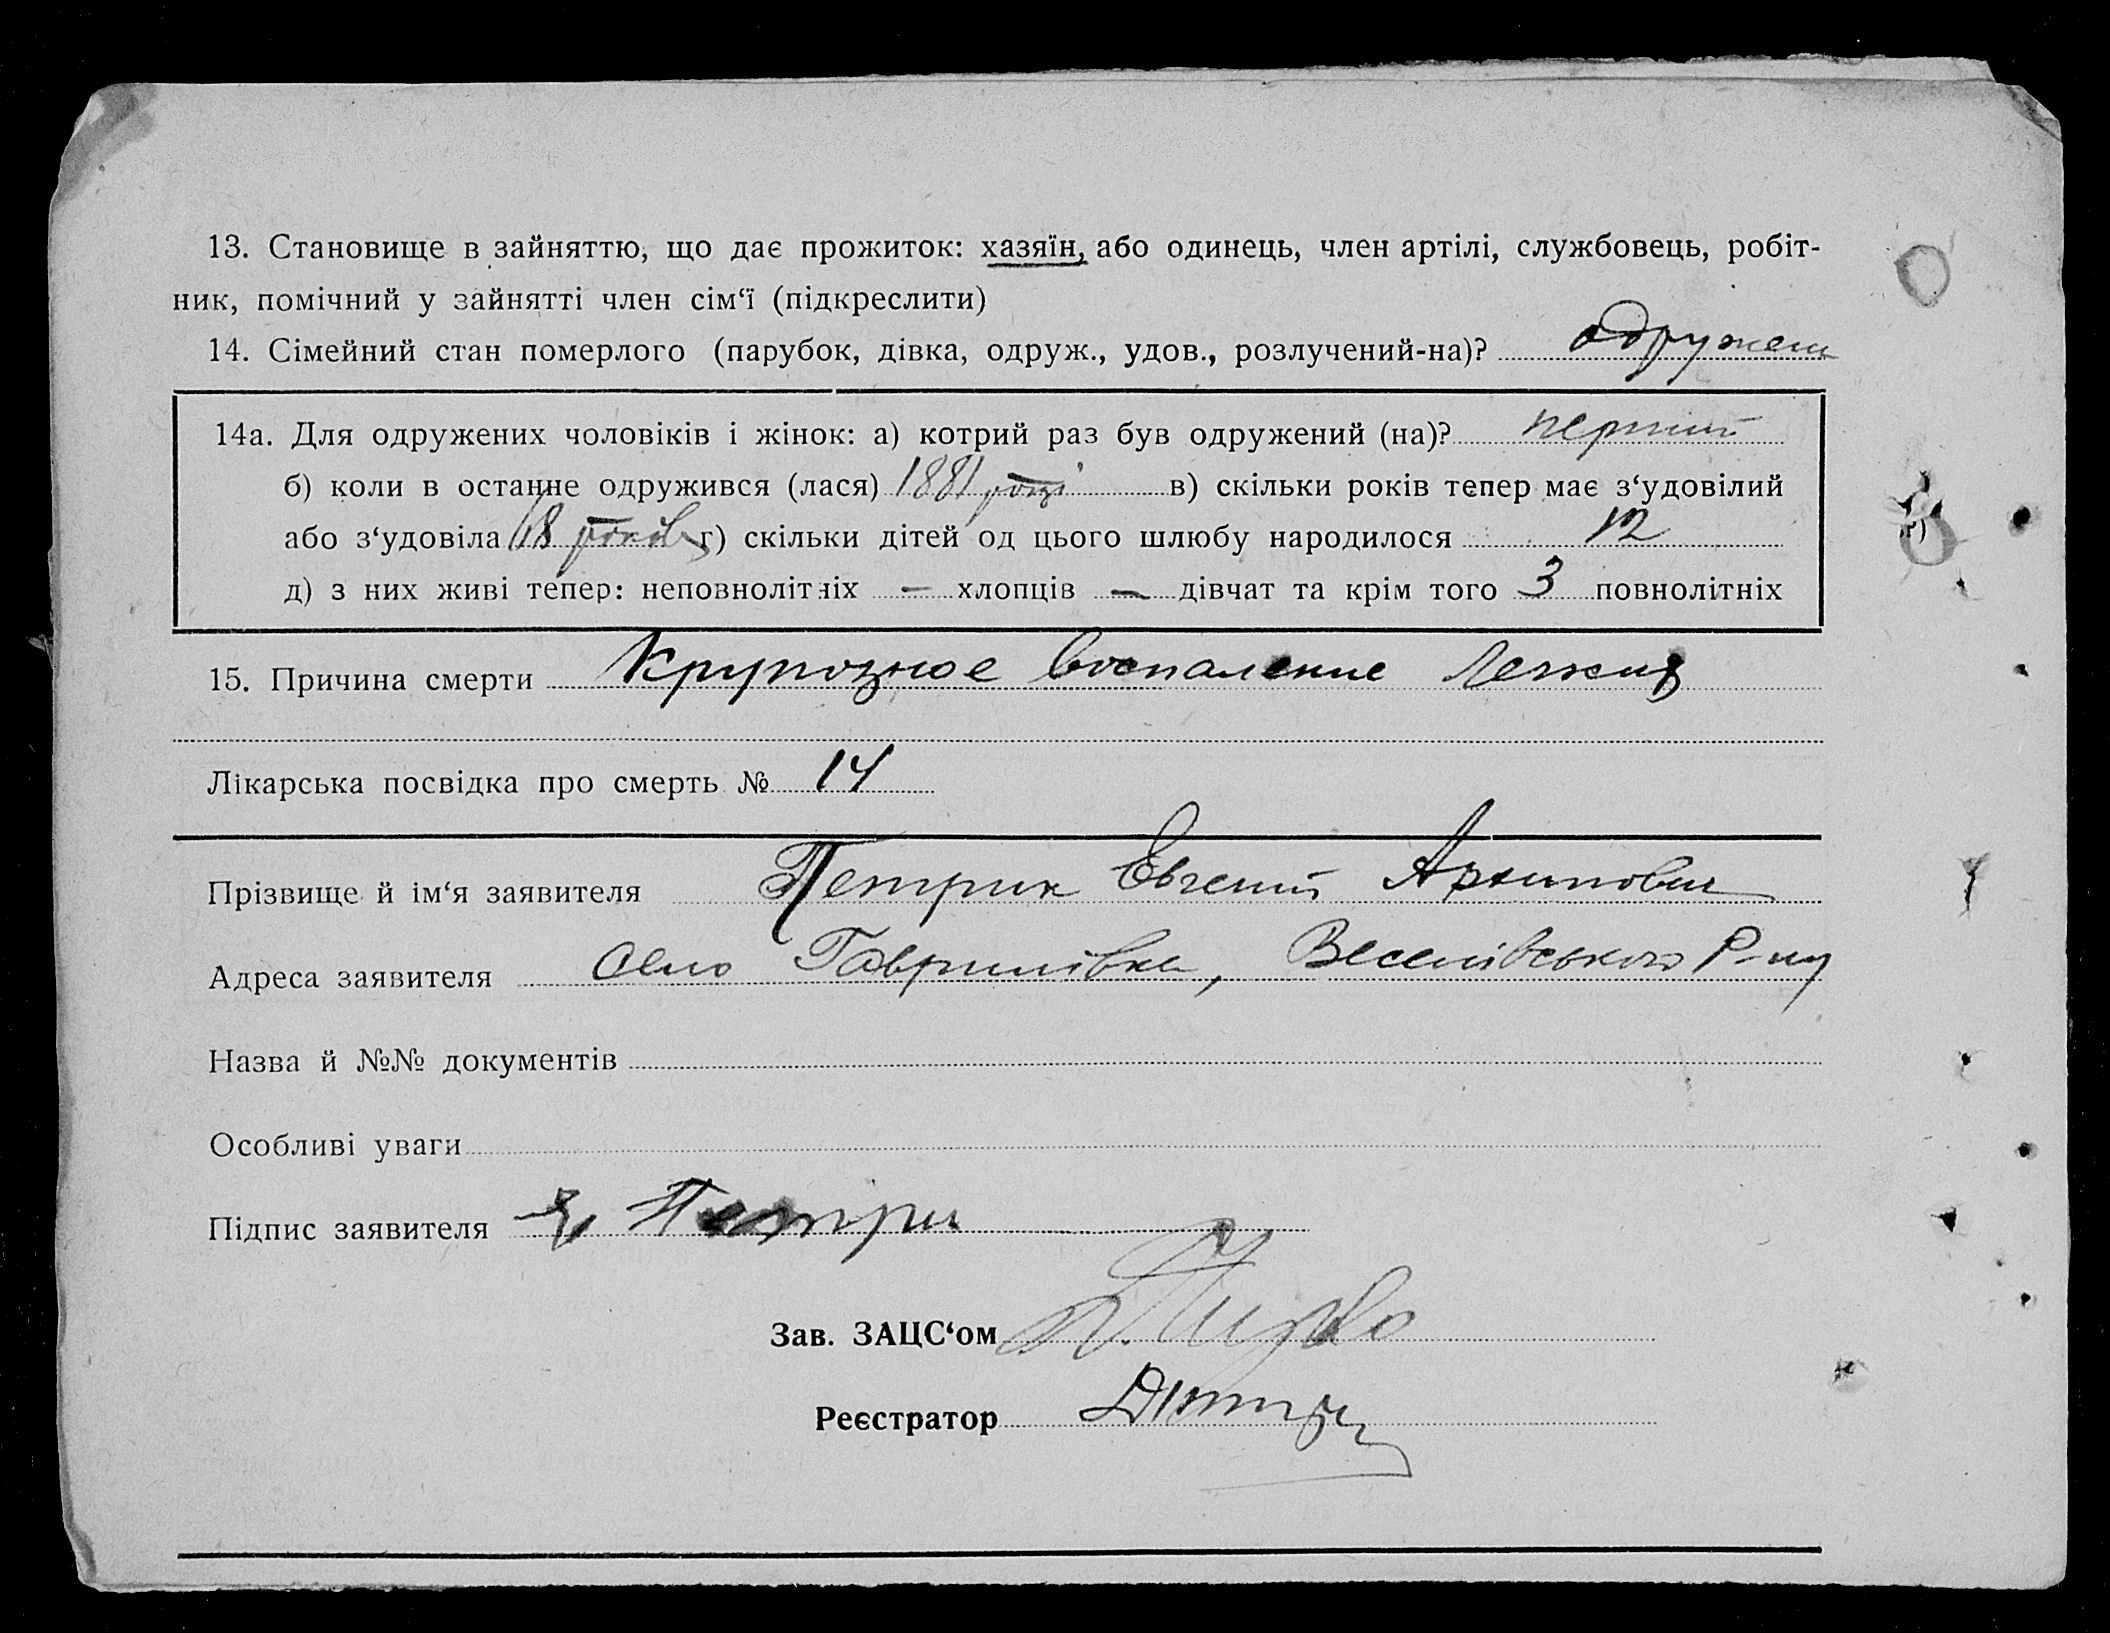 13. Становище в зайняттю, що дає прожиток: хазяїн, або одинець, член артілі, службовець, робіт-
ник, помічний у зайнятті член сім‘ї (підкреслити)
14. Сімейний стан померлого (парубок, дівка, одруж., удов., розлучений-на)? одружен
14а. Для одружених чоловіків і жінок: а) котрий раз був одружений (на)? перший
б) коли в останнє одружився (лася) 1881 році в) скільки років тепер має з‘удовілий
або з‘удовіла 68 років г) скільки дітей од цього шлюбу народилося 12
д) з них живі тепер: неповнолітніх — хлопців — дівчат та крім того 3 повнолітніх
15. Причина смерти Крупозное воспаление легких
Лікарська посвідка про смерть № 14
Прізвище й ім‘я заявителя Петрик Евгений Архипович
Адреса заявителя село Гаврилівка, Веселівського Р-ну
Назва й №№ документів
Особливі уваги
Підпис заявителя Петрик
Зав. ЗАЦС‘ом
Реєстратор